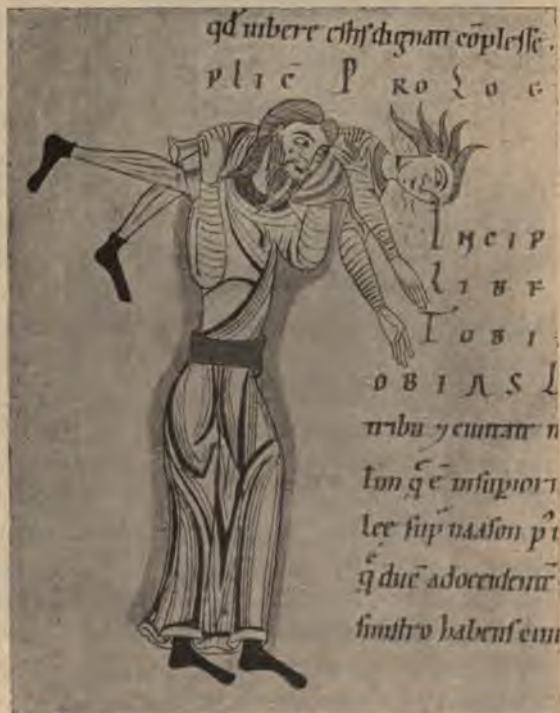 qđ uibere estis dignati cōplesse.
PLIĒ PROLOG
INCIP
LIBE
TOBI
OBIAS
tribu ⁊ ciuitate n
lim q̄ ē in supiori
lee sup̄ naason p̄
q̄ duc̄ ad occidentē
sinistro habens ciui